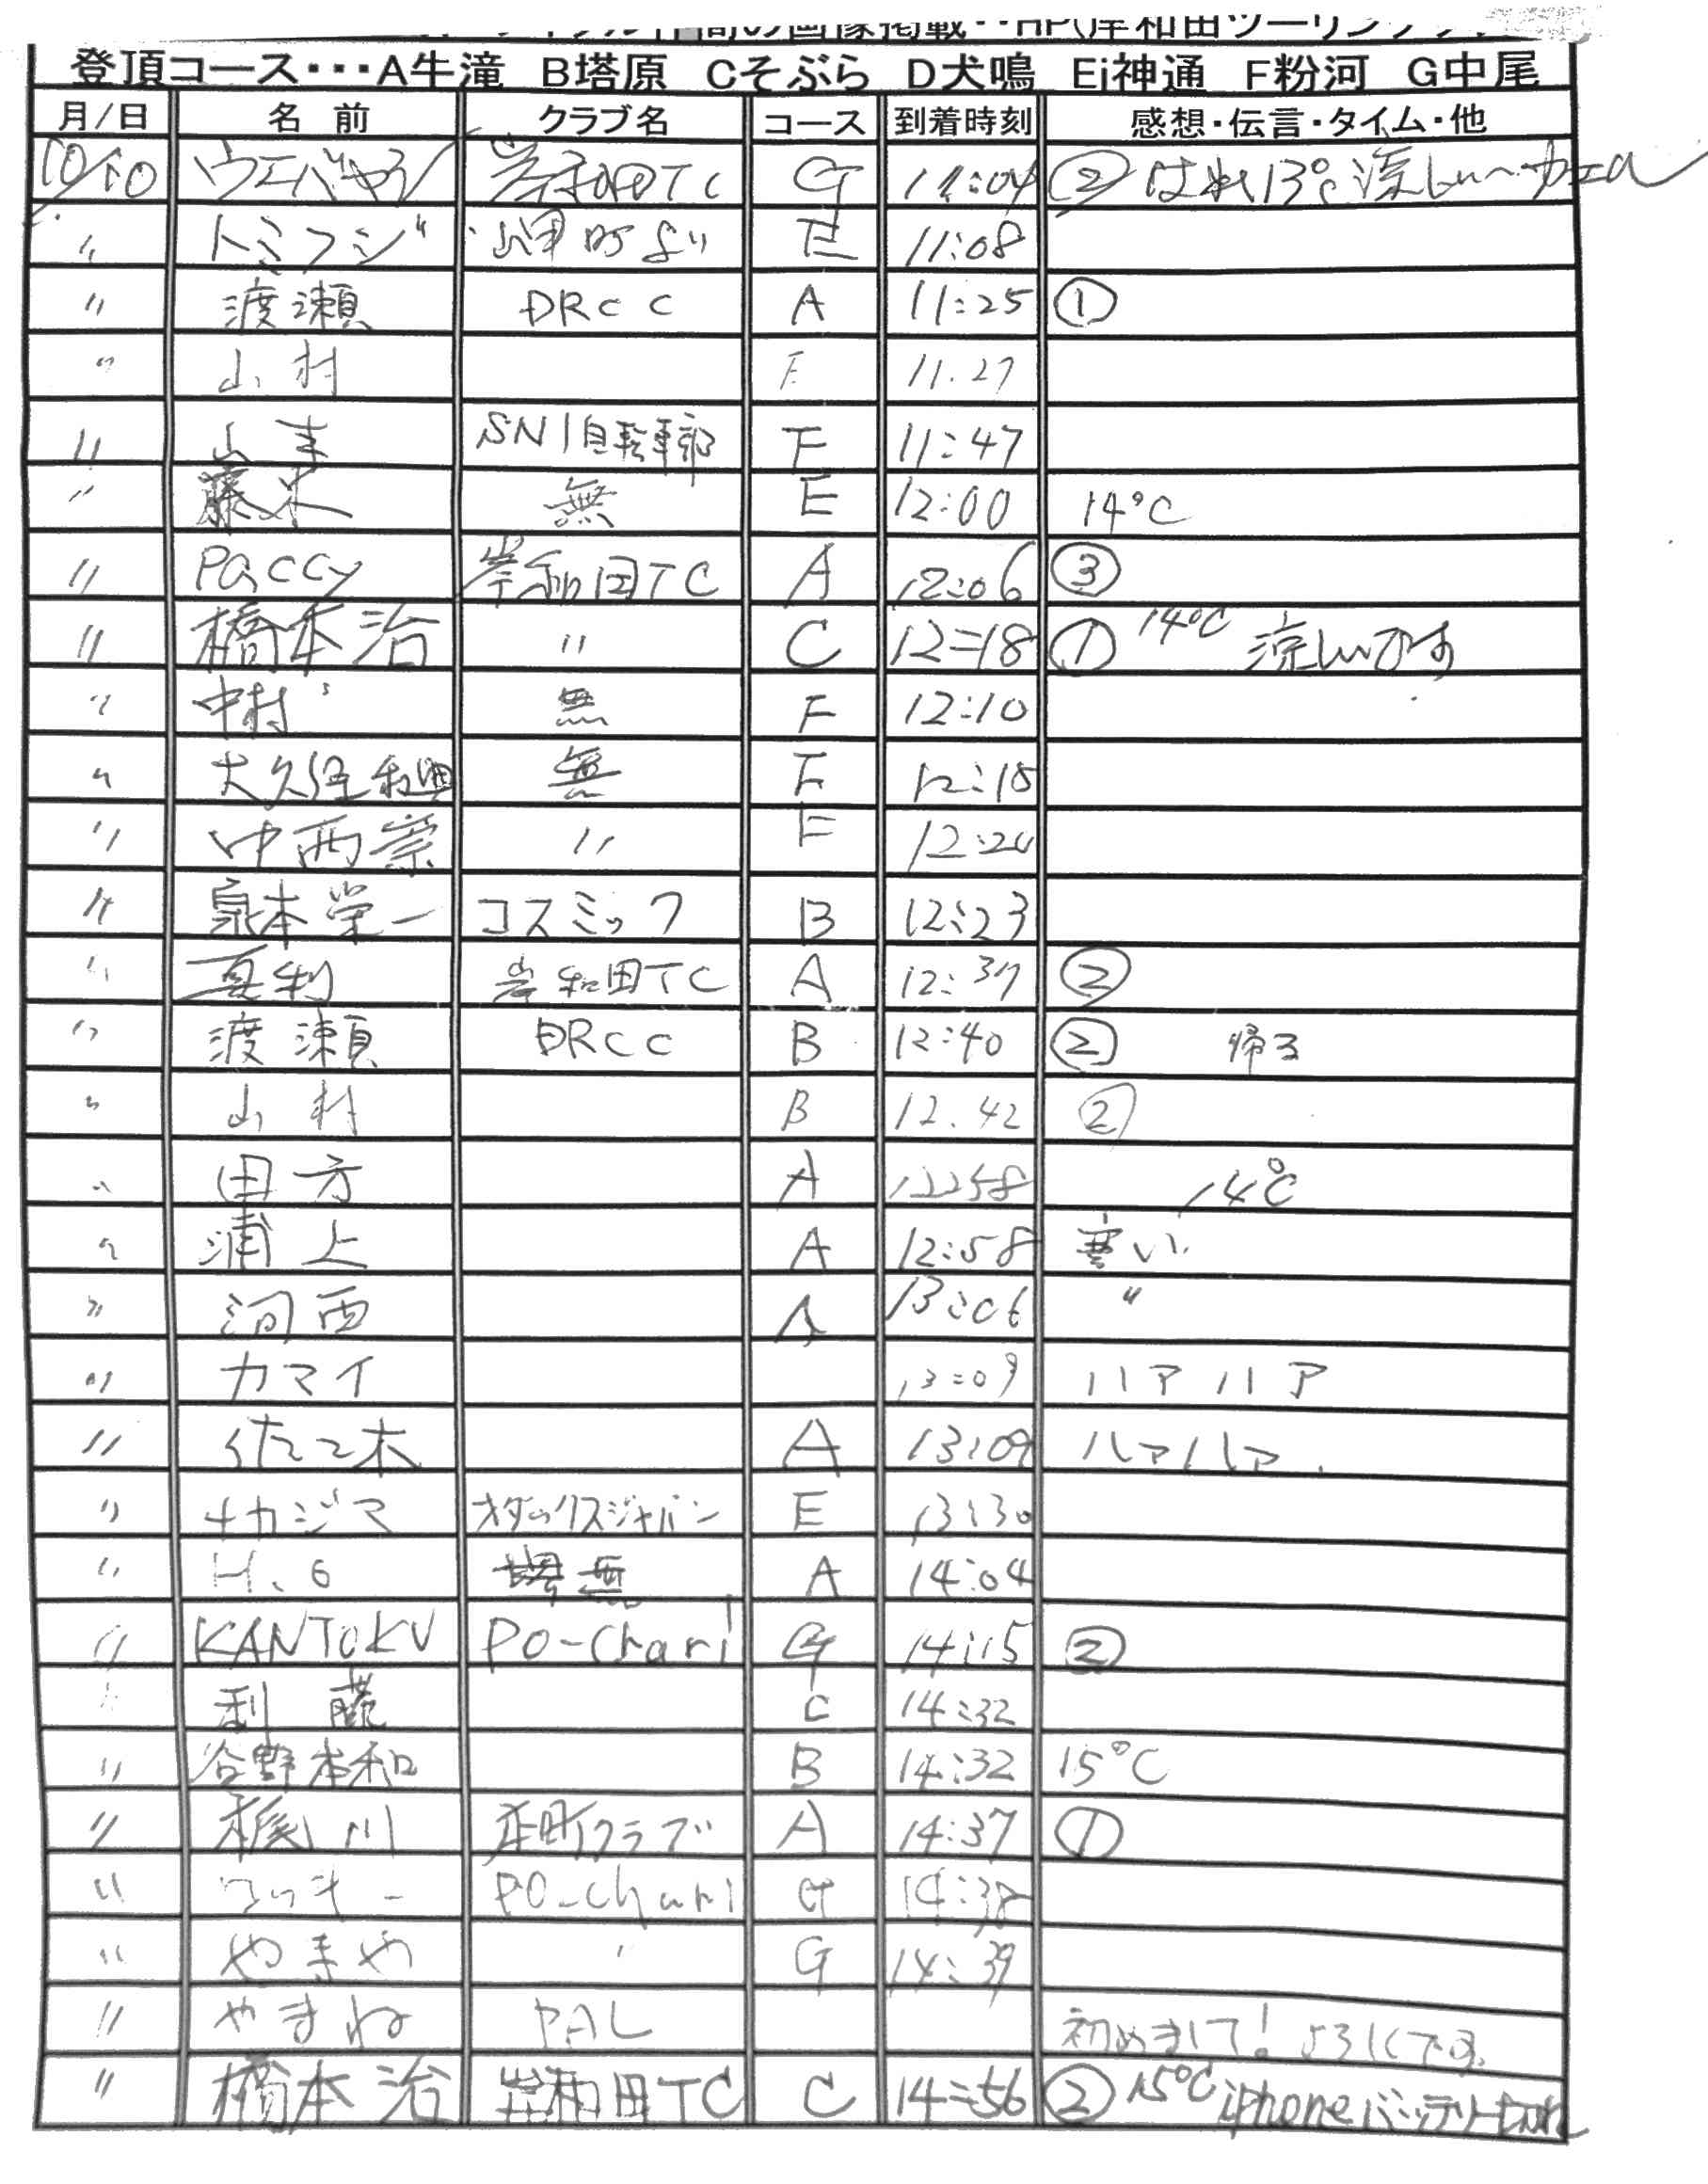 の画像掲載・・HP(岸和田ツーリング
登頂コース・・・A牛滝 B塔原 Cそぶら D犬鳴 Ej神通 F粉河 G中尾
月/日 名前 クラブ名 コース 到着時刻 感想・伝言・タイム・他
10/10 ウエバヤシ 岸和田TC G 11:04 ② はれ13℃涼しい〜カエル
〃 トミフジ 岬町より E 11:08
〃 渡瀬 DRCC A 11:25 ①
〃 山村 F 11.27
〃 山本 SNI自転車部 F 11:47
〃 藤木 無 E 12:00 14℃
〃 Paccy 岸和田TC A 12:06 ③
〃 橋本治 〃 C 12=18 ① 14℃ 涼しいです
〃 中村 無 F 12:10
〃 大久保 無 F 12:15
〃 中西崇 〃 F 12:20
〃 泉本栄一 コスミック B 12:23
〃 真利 岸和田TC A 12:37 ②
〃 渡瀬 DRCC B 12:40 ② 帰る
〃 山村 B 12.42 ②
〃 田方 A 12:58 14℃
〃 浦上 A 12:58 寒い.
〃 河西 A 13:06 〃
〃 カマイ 13:09 ハアハア
〃 佐々木 A 13:09 ハアハア.
〃 ナカジマ オダックスジャパン E 13:30
〃 H.O 無 A 14:04
〃 KANTOKU PO-Chari G 14:15 ②
〃 利藤 C 14:32
〃 谷野本和 B 14:32 15℃
〃 梶川 本町クラブ A 14:37 ①
〃 ワッキー PO-Chari G 14:38
〃 やまや 〃 G 14:39
〃 やまね PAL 初めまして!よろしくです.
〃 橋本治 岸和田TC C 14=56 ② 15℃ iphoneバッテリー切れ